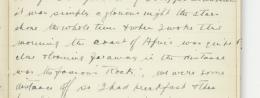 it was simply a glorious night the stars
shone the whole time & when I woke this
morning the coast of Africa was quite
close looming faraway in the distance
was the famous "Rock", we were some
distance off so I had breakfast & then